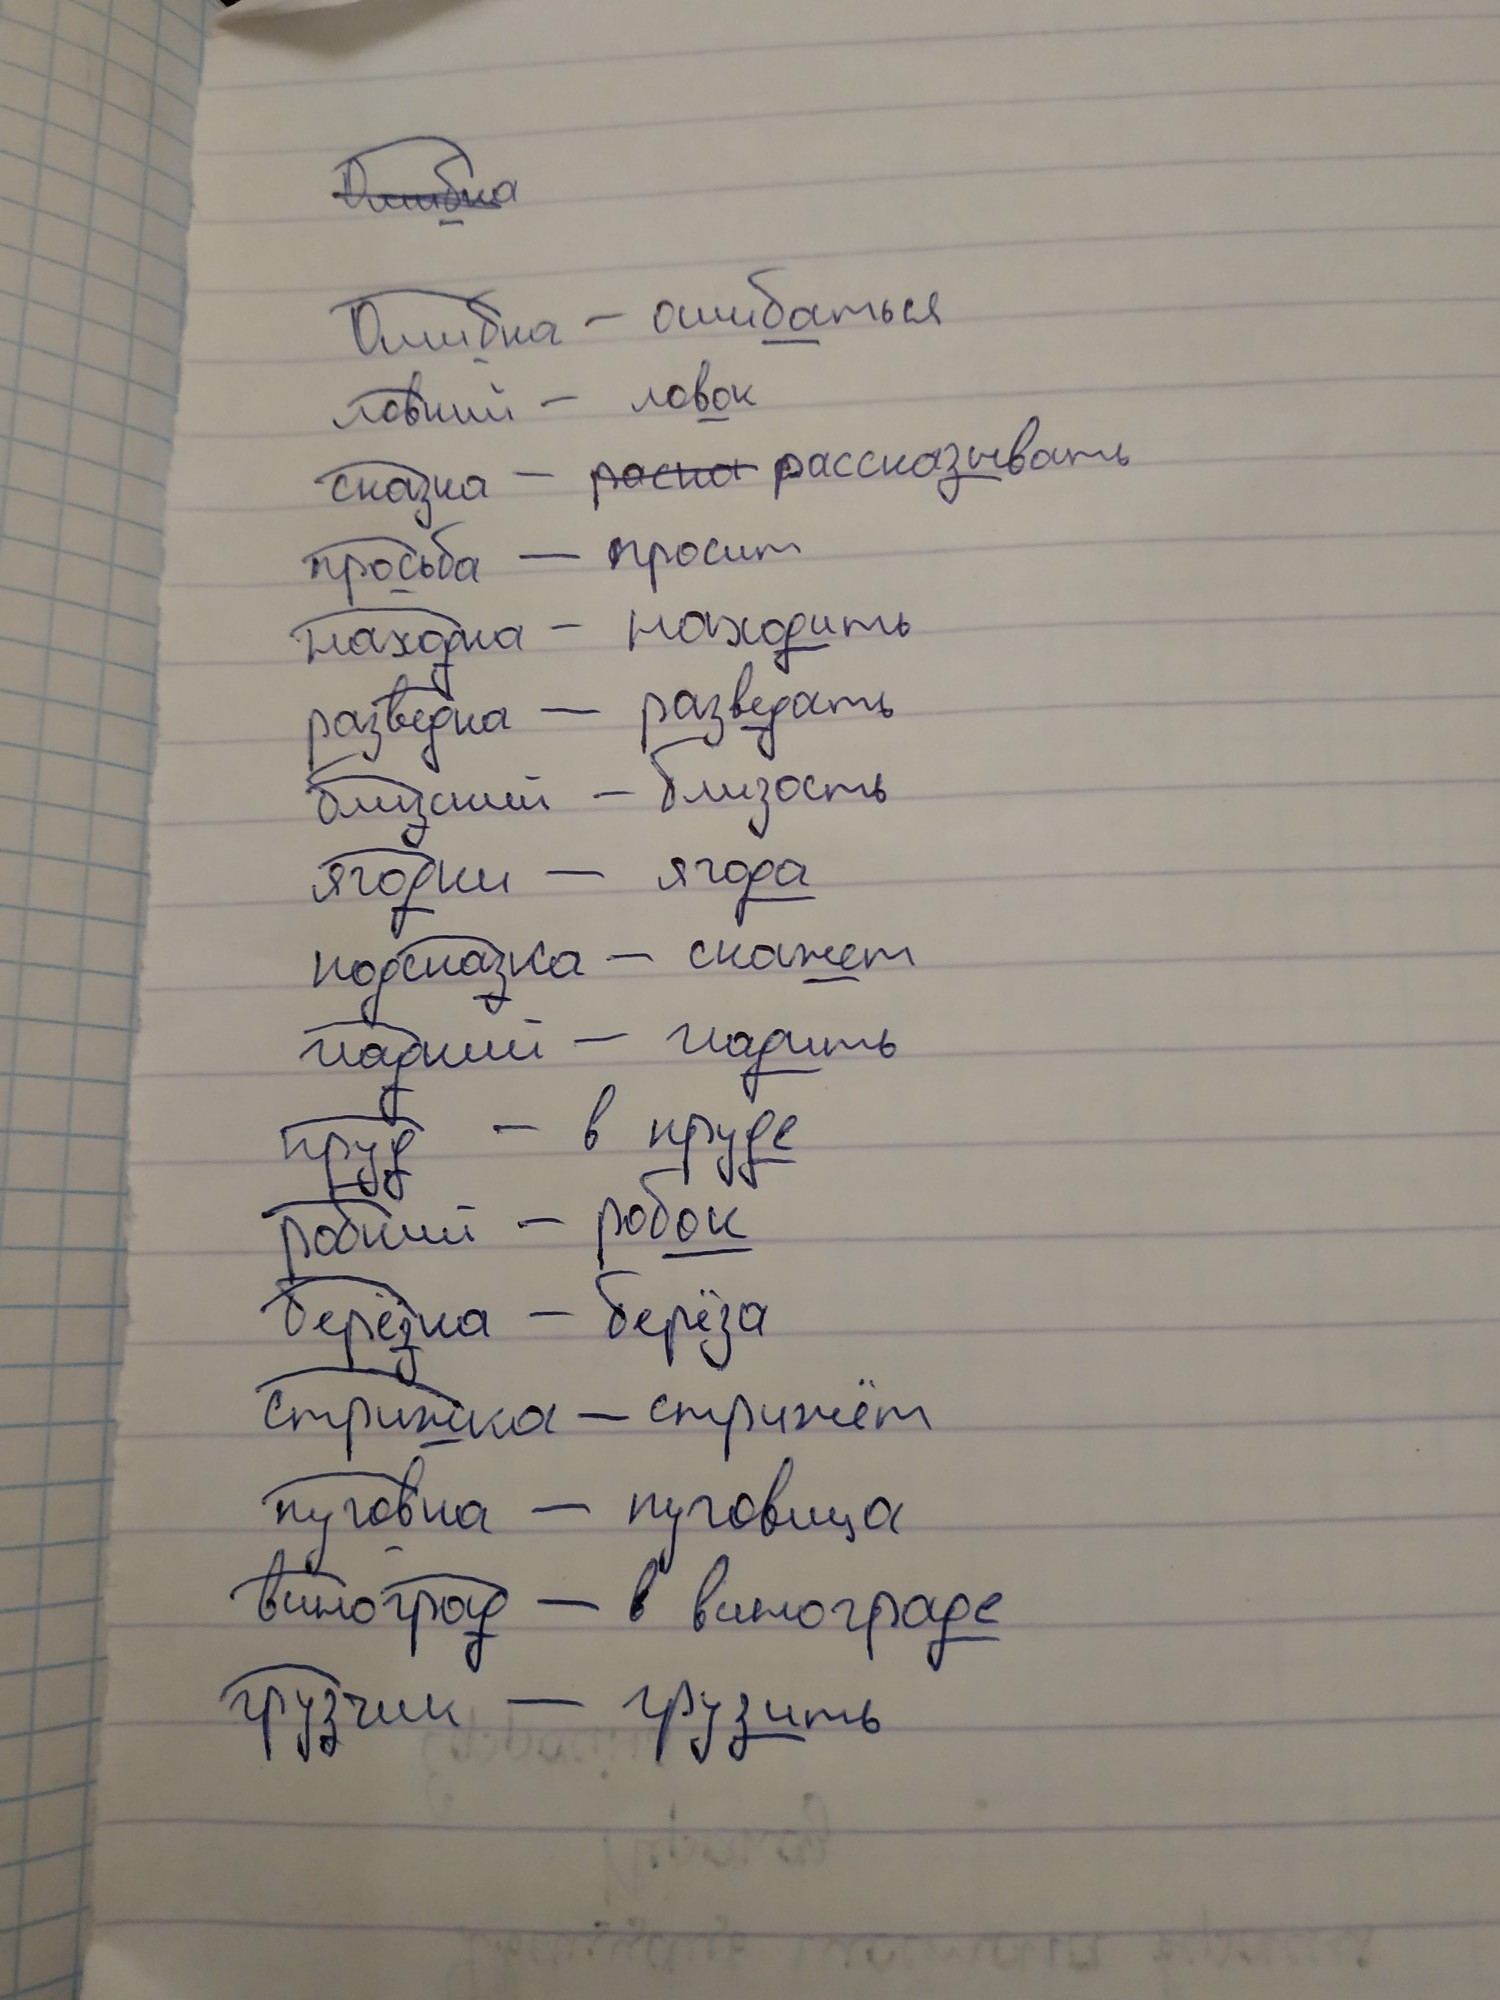 Ошибка
Ошибка — ошибаться
ловкий — ловок
сказка — раска рассказывать
просьба — просит
находка — находить
разведка — разведать
близкий — близость
ягодки — ягода
подсказка — скажет
гладкий — гладить
пруд — в пруде
робкий — робок
берёзка — берёза
стрижка — стрижёт
пуговка — пуговица
виноград — в винограде
грузчик — грузить